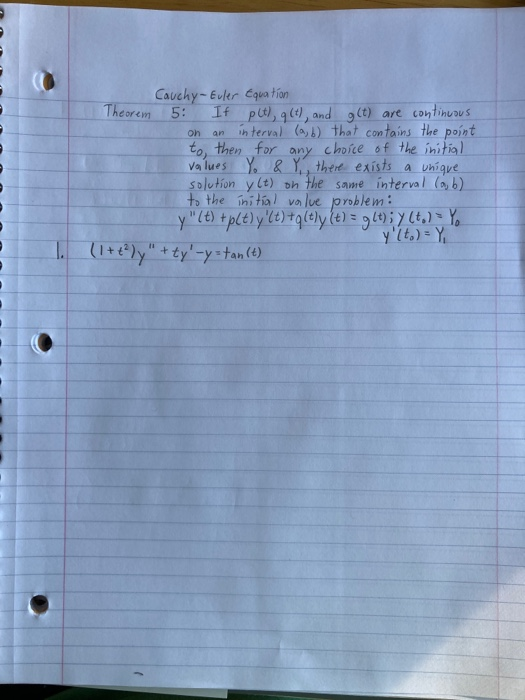 Cauchy-Euler Equation
Theorem 5: If p(t), q(t), and g(t) are continuous
on an interval (a,b) that contains the point
t₀, then for any choice of the initial
values Y₀ & Y₁, there exists a unique
solution y(t) on the same interval (a,b)
to the initial value problem:
y"(t) + p(t)y'(t) + q(t)y(t) = g(t); y(t₀) = Y₀
y'(t₀) = Y₁
1. (1+t²)y" + ty' - y = tan(t)